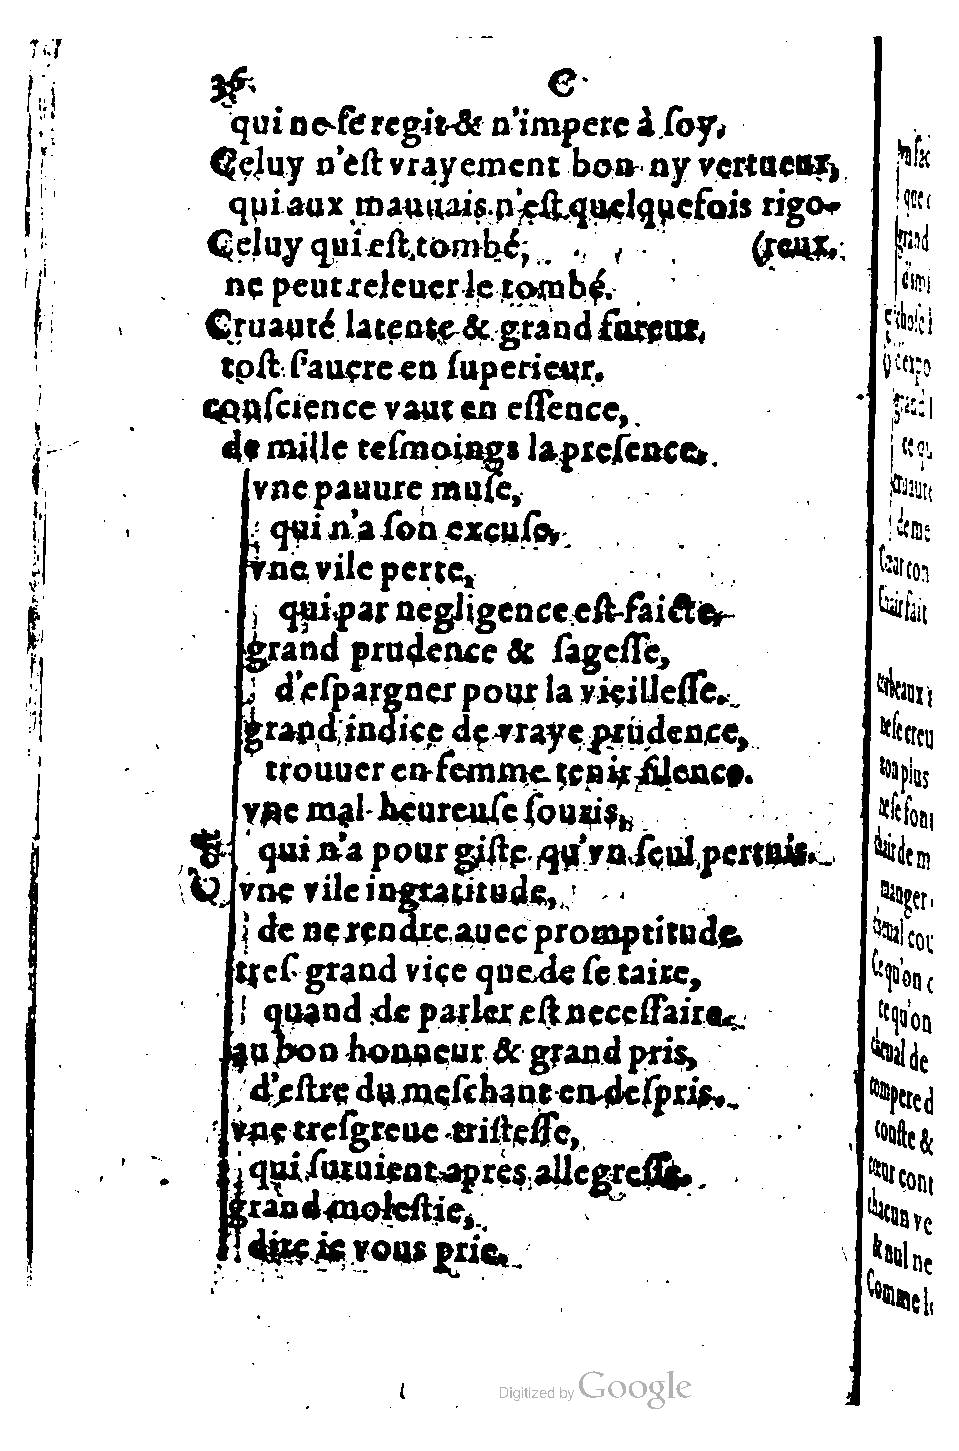 36 C
qui ne ſe regit & n'impere à ſoy,
Celuy n'eſt vrayement bon ny vertueux,
qui aux mauuais n'eſt quelquefois rigo-
Celuy qui eſt tombé, (reux.
ne peut releuer le tombé.
Cruauté latente & grand fureur,
toſt ſ'aucre en ſuperieur.
conſcience vaut en eſſence,
de mille teſmoings la preſence.
vne pauure muſe,
qui n'a ſon excuſe,
vne vile perte,
qui par negligence eſt faicte,
grand prudence & ſageſſe,
d'eſpargner pour la vieilleſſe.
grand indice de vraye prudence,
trouuer en femme tenir ſilence.
vne mal-heureuſe ſouris,
qui n'a pour giſte qu'vn ſeul pertuis.
C'eſt vne vile ingratitude,
de ne rendre auec promptitude.
treſ grand vice que de ſe taire,
quand de parler eſt neceſſaire.
au bon honneur & grand pris,
d'eſtre du meſchant en deſpris.
vne treſgreue triſteſſe,
qui ſuruient apres allegreſſe.
grand moleſtie,
dire ie vous prie.
Digitized by Google